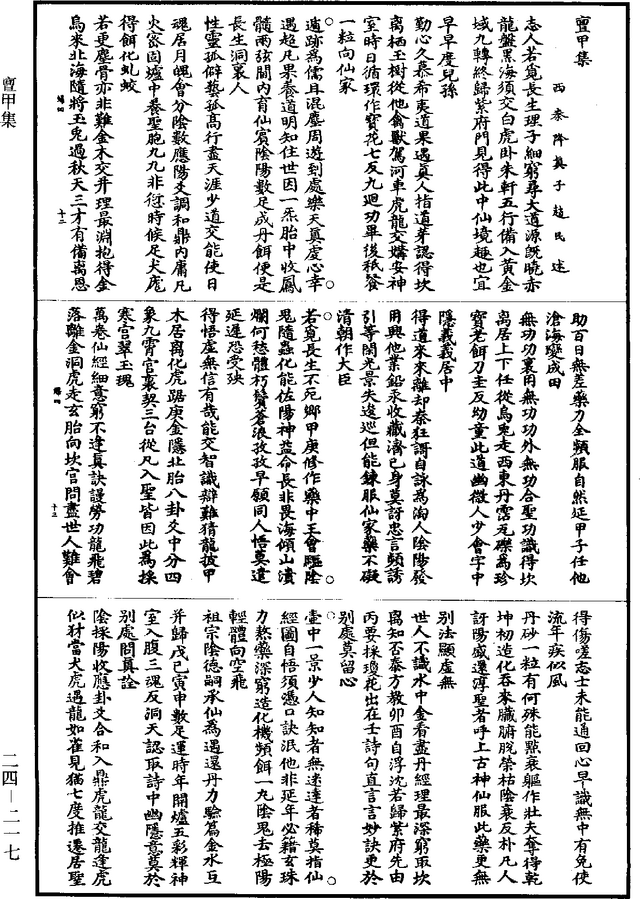 亶甲集
西秦降真子趙民述
志人若覓長生理子細窮尋大道源既曉赤
龍盤黑海須交白虎臥朱軒五行備入黃金
域九轉終歸紫府門見得此中仙境趣也宜
早早度兒孫
勤心久慕希夷道果遇真人指道芽認得坎
離栖玉樹從他禽獸駕河車虎龍交媾安神
室時日循環作寶花七反九迴功畢後秖發
一粒向仙家
遁跡為儒且混塵周遊到處樂天真虔心幸
遇超凡果養道明知住世因一炁胎中收鳳
髓兩弦間內育仙賓陰陽數足成丹餌便是
長生洞裏人
性靈孤僻藝孤高行盡天涯少道交能使日
魂居月魄會分陰數應陽爻調和鼎內庸凡
火密固爐中養聖胞九九非愆時候足
得餌化虬蛟
若更塵骨亦非難金木交并理最淵抱得金
烏來北海隨將玉兔過秋天三才有備离恩
十二
助百日無差藥力全頻服自然延甲子任他
滄海變成田
無功功裏用無功功外無功合聖功識得坎
离居上下任從烏兔走西東丹霑瓦礫為珍
寶老餌刀圭反幼童此道幽微人少會字中
隱義義居中
得道來來離却秦狂謌自詠為淘人陰陽發
用興他業鉛汞收藏濟己身莫訝忠言頻誘
引等閑光景失逡巡但能鍊服仙家藥不礙
清朝作大臣
若覓長生不死鄉甲庚修作藥中王會驅陰
鬼隨蟲化能佐陽神益命長非畏海傾山潰
爛何愁體朽鬢蒼浪孜孜早願同人悟莫遣
延遲恐受殃
得悟虛無信有哉能交智識辯難猜龍披甲
木居离化虎踞庚金隱北胎八卦爻中分四
象九霄宫裏契三台從凡入聖皆因此為採
寒宫翠玉瑰
萬卷仙經細意窮不逢真訣謾勞功龍飛碧
落離金洞虎走玄胎向坎宮問盡世人難會
十三
得傷嗟志士未能通回心早識無中有免使
流年疾似風
丹砂一粒有何殊能點衰軀作壯夫奪得乾
坤初造化吞來臟腑脫榮枯陰衰反朴凡人
訝陽盛還淳聖者呼上古神仙服此藥更無
別法顯虛無
世人不識水中金看盡丹經理最深窮取坎
离知否泰方教卯酉自浮沈若歸紫府先由
丙要採瓊花出在壬詩句直言言妙訣更於
別處莫留心
壺中一景少人知知者無迷達者稀莫指仙
經圖自悟須憑口訣泯他非延年必籍玄珠
力熬藥深窮造化機頻餌一丸陰鬼去極陽
輕體向空飛
祖宗陰德嗣承仙為遇還丹力驗篇金水互
并歸戊己寅申數足運時年開爐五彩輝神
室入腹三魂反洞天認取詩中幽隱意莫於
別處問真詮
陰採陽收應卦爻合和入鼎虎龍交龍逢虎
似犲當犬虎遇龍如雀見猫七度推遷居聖
亶甲集
二四—二一七